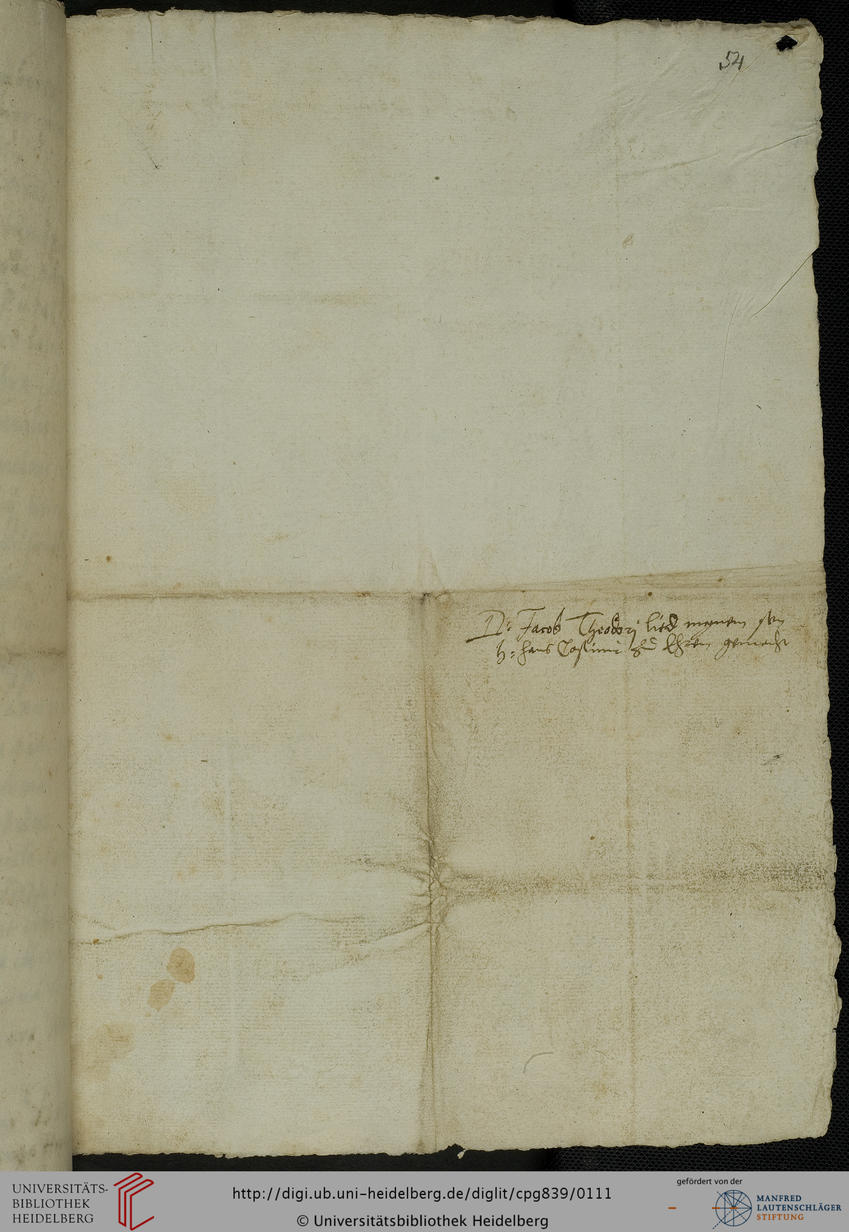 54
D: Jacob Theodorj lied meinem gn
h: hans Casimir zu Ehren gemacht
UNIVERSITÄTS-
BIBLIOTHEK
HEIDELBERG
http://digi.ub.uni-heidelberg.de/diglit/cpg839/0111
© Universitätsbibliothek Heidelberg
gefördert von der
MANFRED
LAUTENSCHLÄGER
STIFTUNG